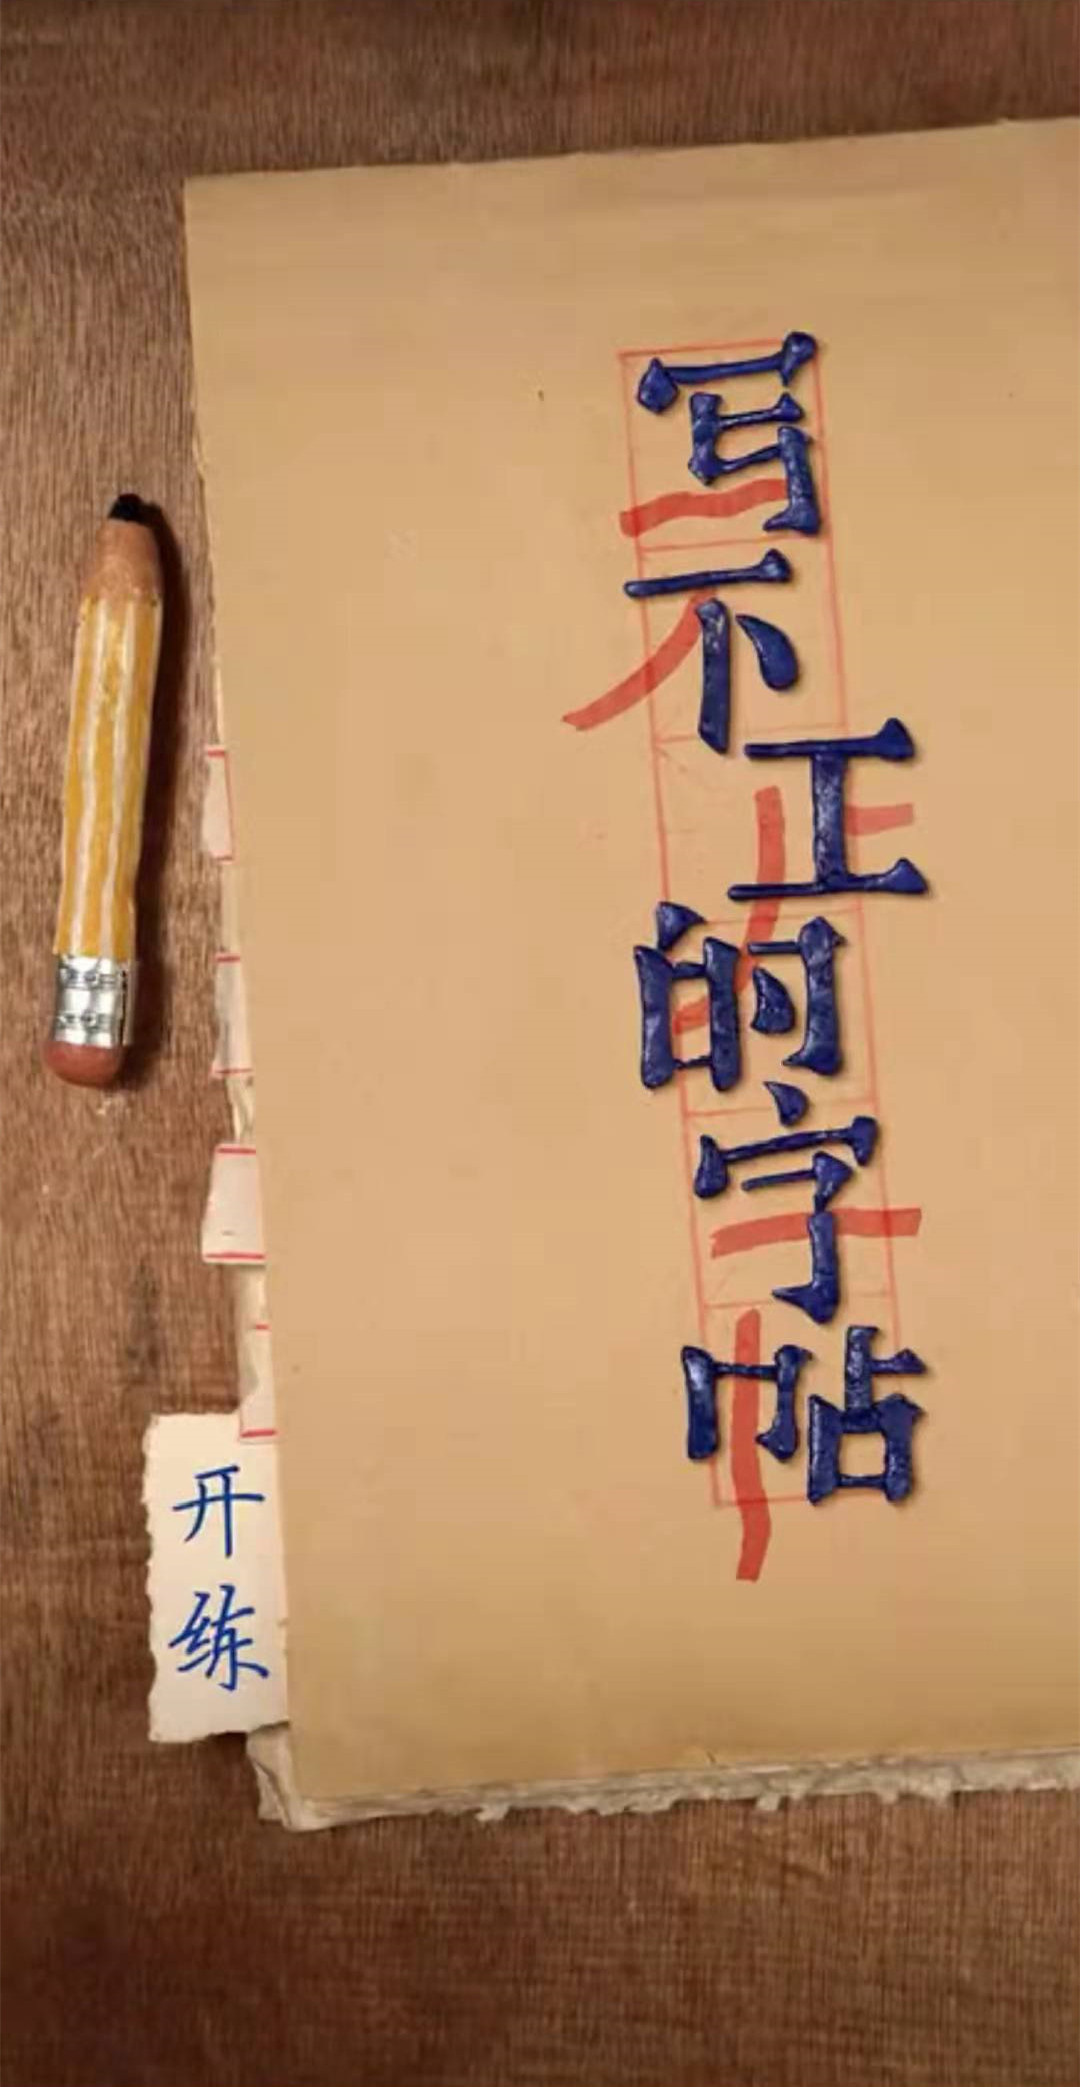 写不正的字帖
开练